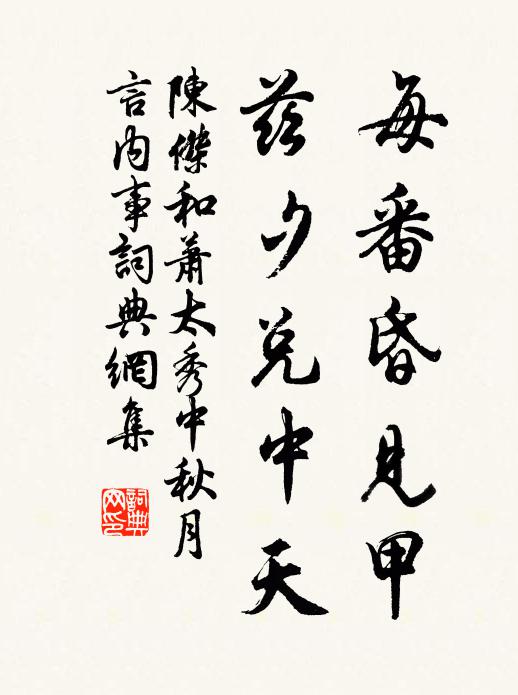 每番昏見甲
茲夕兌中天
陳傑和蕭太秀中秋月
言內事詞典網集
詞典网印